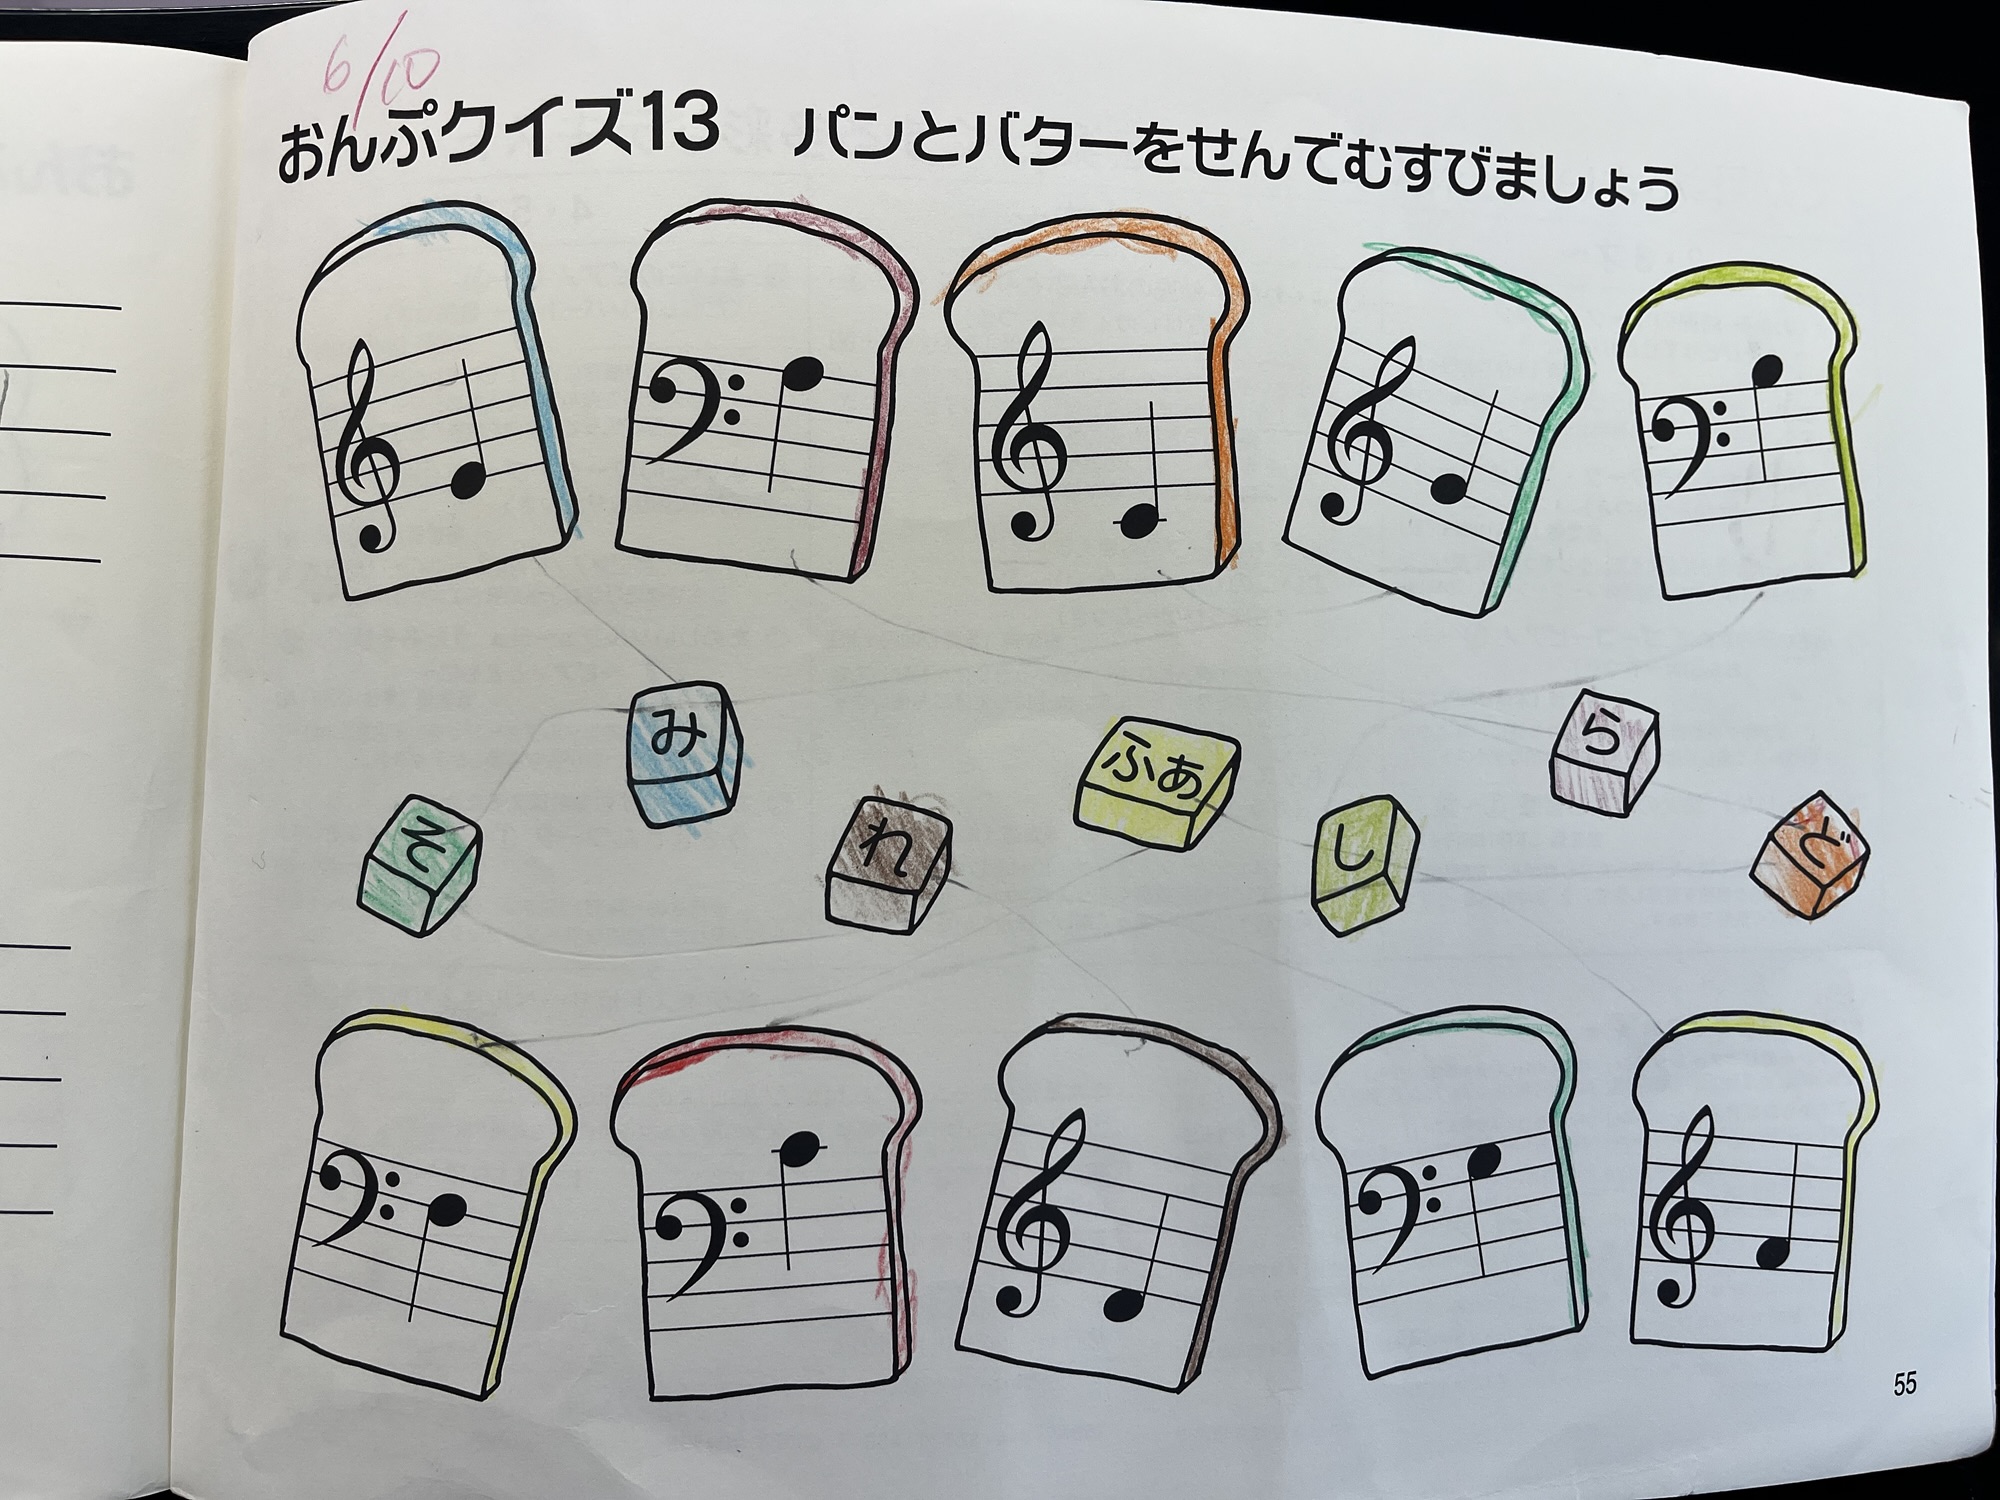 6/10
おんぷクイズ13 パンとバターをせんでむすびましょう
み
ら
ふぁ
そ
れ
し
ど
55